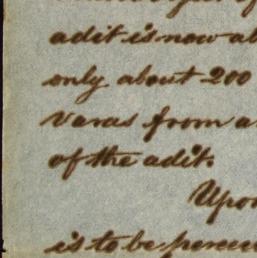 adit is now ab
only about 200
varas from a
of the adit.
Upon
is to be percei